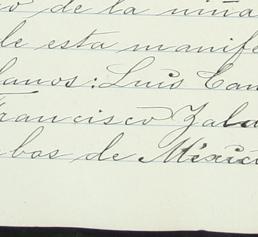 o de la niña
de esta manife
danos: Luis Can
Francisco Zala
bos de México